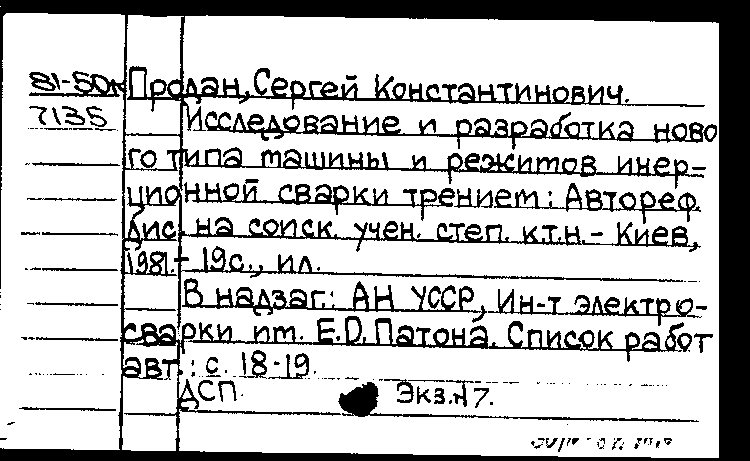 81-50к Продан, Сергей Константинович.
7135 Исследование и разработка ново
го типа машины и режимов инер-
ционной сварки трением: Автореф.
дис. на соиск. учен. степ. к.т.н. - Киев,
1981. - 19с., ил.
В надзаг.: АН УССР, Ин-т электро-
сварки им. Е.О. Патона. Список работ
авт.: с. 18-19.
ДСП Экз.N7.